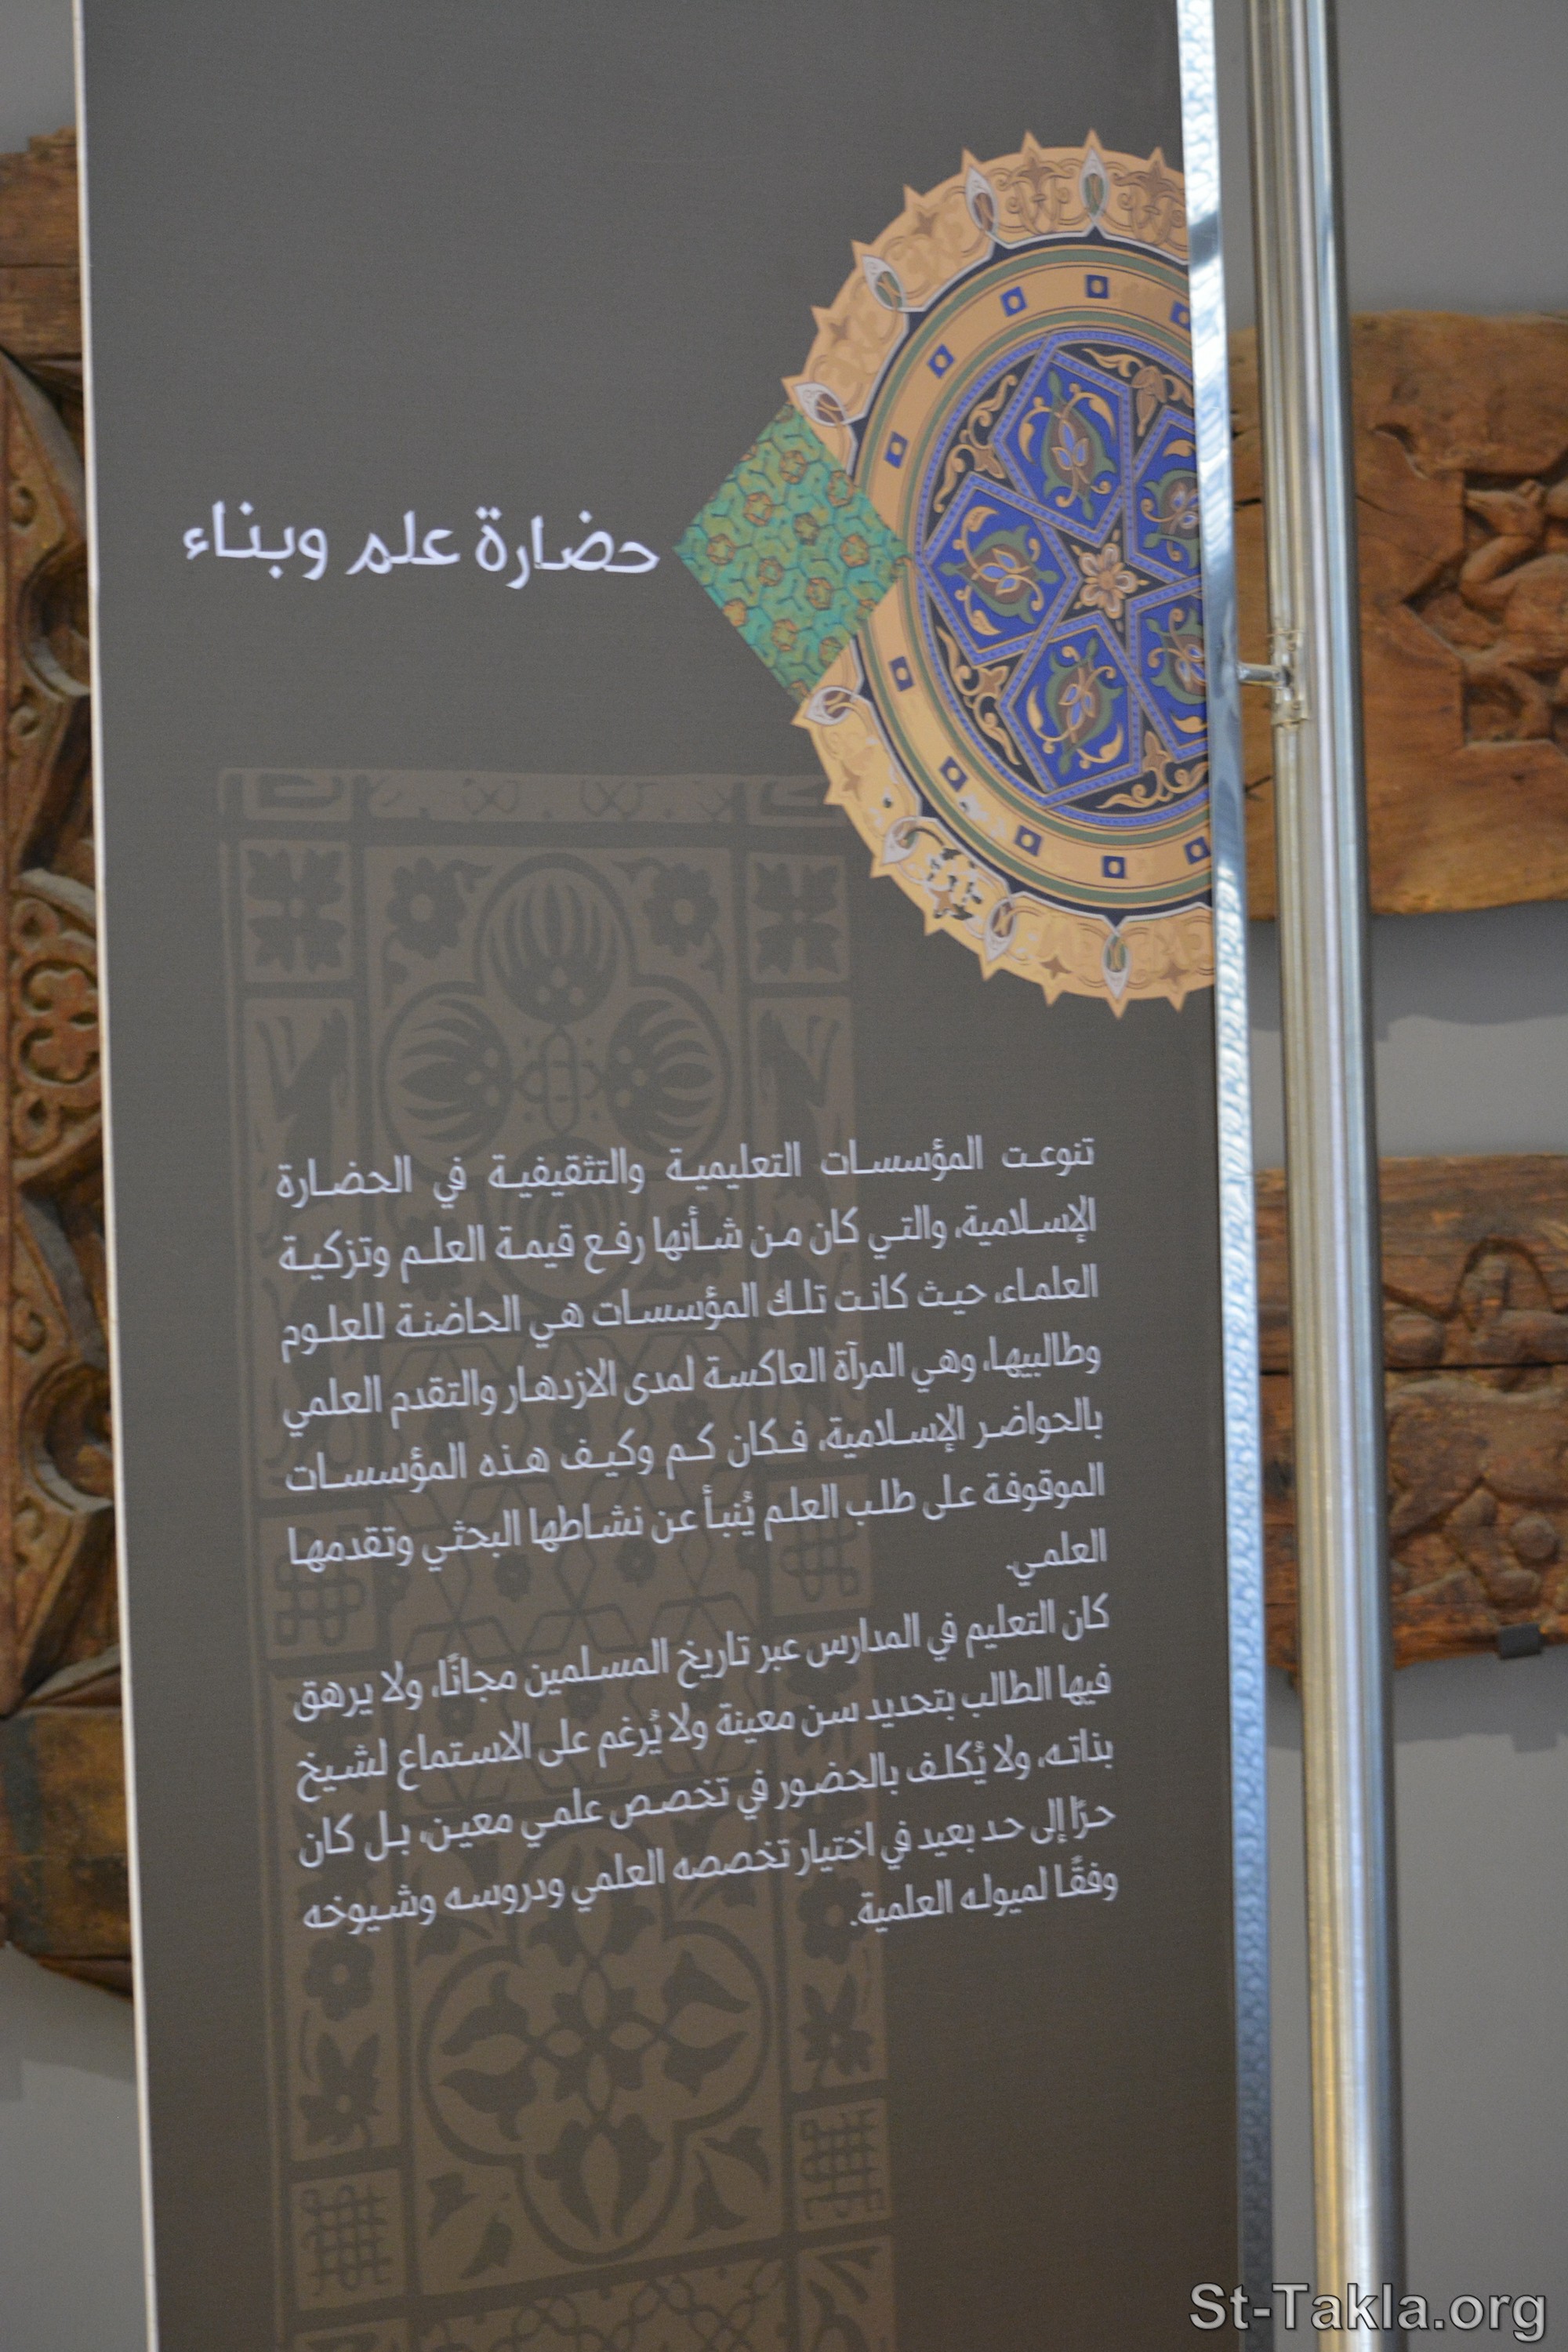 حضارة علم وبناء
تنوعت المؤسسات التعليمية والتثقيفية في الحضارة
الإسلامية، والتي كان من شأنها رفع قيمة العلم وتزكية
العلماء، حيث كانت تلك المؤسسات هي الحاضنة للعلوم
وطالبيها، وهي المرآة العاكسة لمدى الازدهار والتقدم العلمي
بالحواضر الإسلامية، فكان كم وكيف هذه المؤسسات
الموقوفة على طلب العلم يُنبأ عن نشاطها البحثي وتقدمها
العلمي.
كان التعليم في المدارس عبر تاريخ المسلمين مجانًا، ولا يرهق
فيها الطالب بتحديد سن معينة ولا يُرغم على الاستماع لشيخ
بناته، ولا يُكلف بالحضور في تخصص علمي معين، بل كان
حرًا إلى حد بعيد في اختيار تخصصه العلمي ودروسه وشيوخه
وفقًا لميوله العلمية.
St-Takla.org